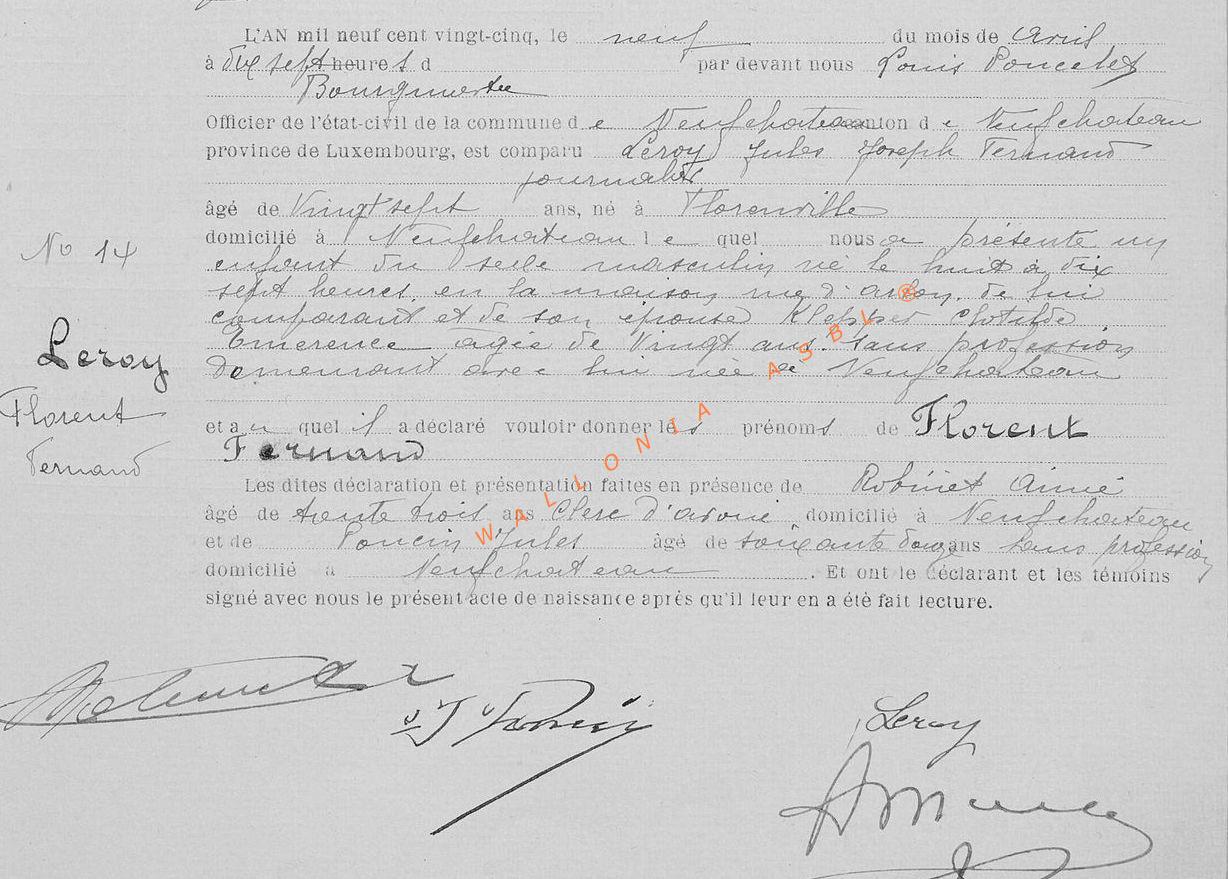 L'AN mil neuf cent vingt-cinq, le neuf du mois de avril
à dix sept heures d par devant nous Louis Poncelet
Bourgmestre
Officier de l'état-civil de la commune d e Neufchateau canton d e Neufchateau
province de Luxembourg, est comparu Leroy Jules Joseph Fernand
journalier
âgé de Vingt sept ans, né à Florenville
domicilié à Neufchateau l e quel nous a présenté un
No 14
enfant du sexe masculin né le huit à dix
sept heures, en la maison rue d'arlon, de lui
comparant et de son epouse Klepper Clotilde
Emerence agée de Vingt ans. sans profession
Leroy
demeurant avec lui née à Neufchateau
Florent
et a u quel il a déclaré vouloir donner le s prénoms de Florent
Fernand
Fernand
Les dites déclaration et présentation faites en présence de Robinet Aimé
âgé de trente trois ans Clerc d'avoué domicilié à Neufchateau
et de Poncin Jules âgé de soixante douze ans sans profession
domicilié à Neufchateau . Et ont le déclarant et les témoins
signé avec nous le présent acte de naissance après qu'il leur en a été fait lecture.
WALLONIA ASBL ®
J Poncin
Leroy